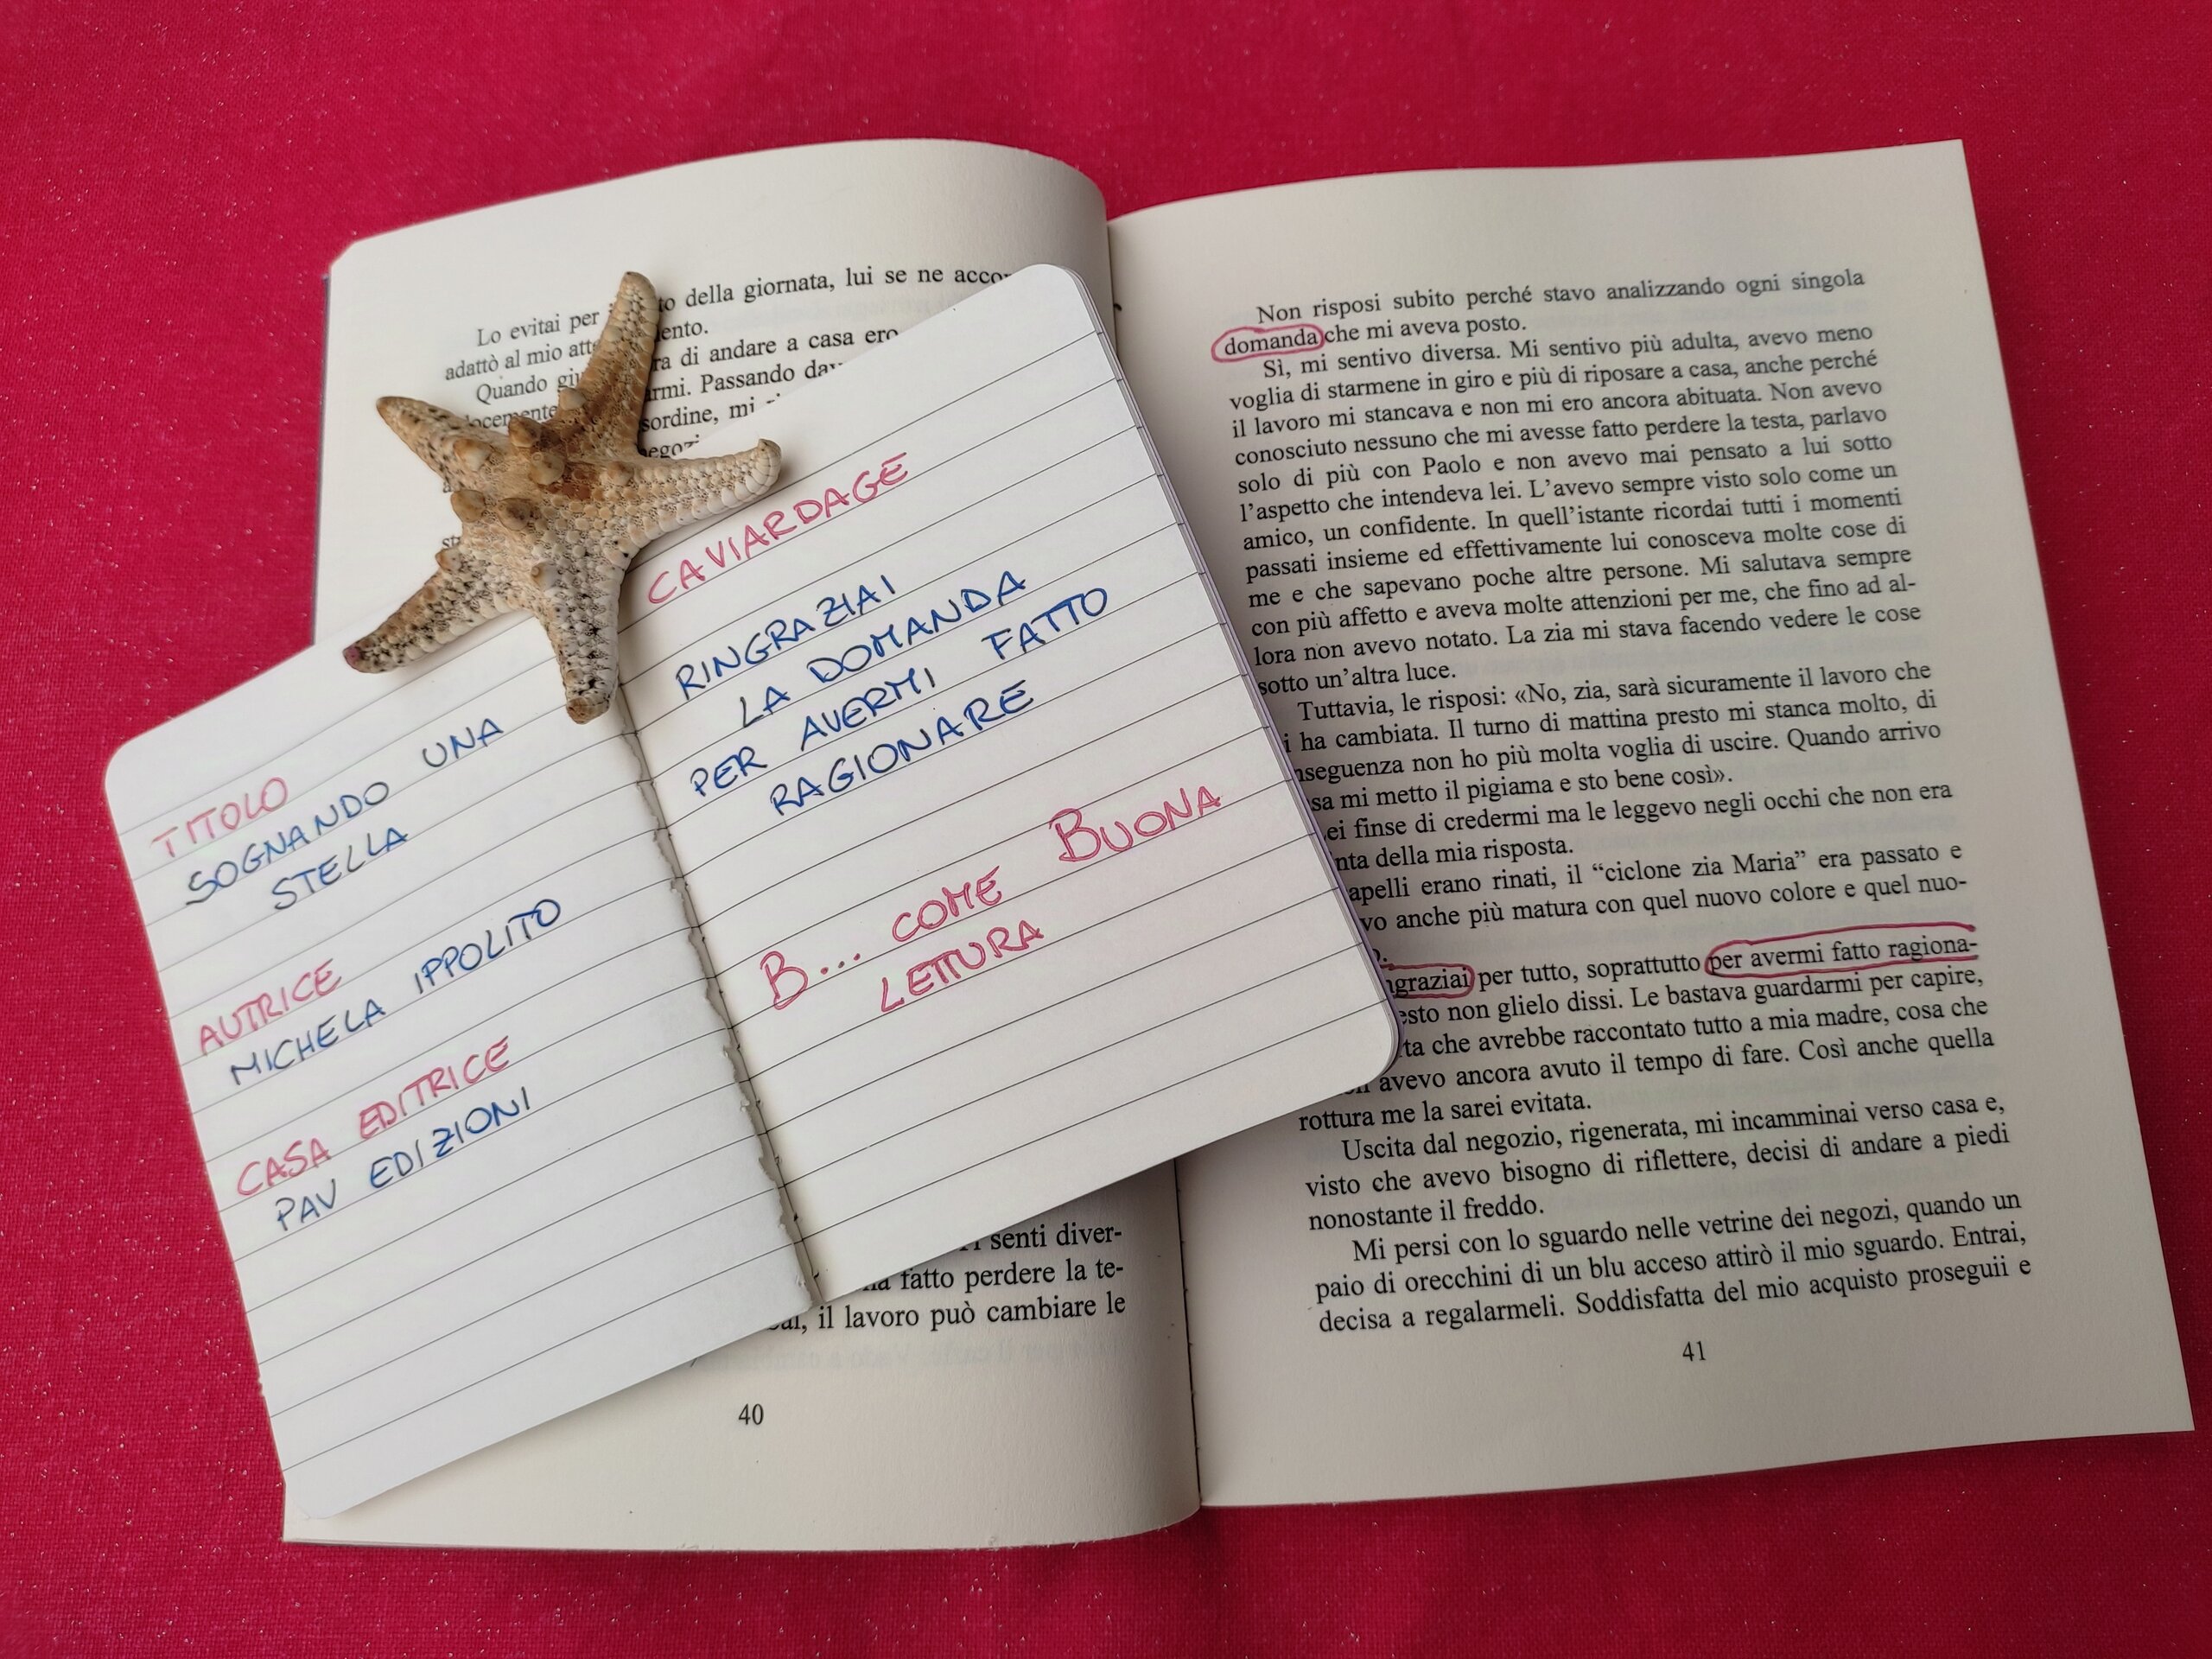 Lo evitai per to della giornata, lui se ne
adattò al mio
Quando ra di andare a casa ero
Passando
mi
TITOLO
SOGNANDO UNA
STELLA
AUTRICE
MICHELA IPPOLITO
CASA EDITRICE
PAV EDIZIONI
CAVIARDAGE
RINGRAZIAI
LA DOMANDA
PER AVERMI FATTO
RAGIONARE
B... COME BUONA
LETTURA
senti diver-
fatto perdere la te-
il lavoro può cambiare le
40
Non risposi subito perché stavo analizzando ogni singola
domanda che mi aveva posto.
Sì, mi sentivo diversa. Mi sentivo più adulta, avevo meno
voglia di starmene in giro e più di riposare a casa, anche perché
il lavoro mi stancava e non mi ero ancora abituata. Non avevo
conosciuto nessuno che mi avesse fatto perdere la testa, parlavo
solo di più con Paolo e non avevo mai pensato a lui sotto
l’aspetto che intendeva lei. L’avevo sempre visto solo come un
amico, un confidente. In quell’istante ricordai tutti i momenti
passati insieme ed effettivamente lui conosceva molte cose di
me e che sapevano poche altre persone. Mi salutava sempre
con più affetto e aveva molte attenzioni per me, che fino ad al-
lora non avevo notato. La zia mi stava facendo vedere le cose
sotto un’altra luce.
Tuttavia, le risposi: «No, zia, sarà sicuramente il lavoro che
i ha cambiata. Il turno di mattina presto mi stanca molto, di
nseguenza non ho più molta voglia di uscire. Quando arrivo
sa mi metto il pigiama e sto bene così».
ei finse di credermi ma le leggevo negli occhi che non era
nta della mia risposta.
apelli erano rinati, il “ciclone zia Maria” era passato e
vo anche più matura con quel nuovo colore e quel nuo-
o.
ngraziai per tutto, soprattutto per avermi fatto ragiona-
esto non glielo dissi. Le bastava guardarmi per capire,
rta che avrebbe raccontato tutto a mia madre, cosa che
avevo ancora avuto il tempo di fare. Così anche quella
rottura me la sarei evitata.
Uscita dal negozio, rigenerata, mi incamminai verso casa e,
visto che avevo bisogno di riflettere, decisi di andare a piedi
nonostante il freddo.
Mi persi con lo sguardo nelle vetrine dei negozi, quando un
paio di orecchini di un blu acceso attirò il mio sguardo. Entrai,
decisa a regalarmeli. Soddisfatta del mio acquisto proseguii e
41